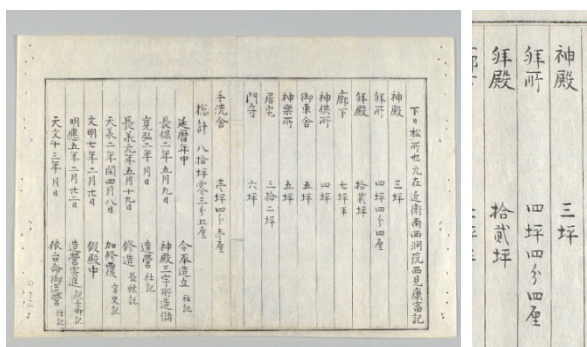 下日松所也元在近衛南西洞院西見康富記
神殿 三坪
拜所 四坪四分四厘
拜殿 拾貳坪
廊下 七坪半
神供所 四坪
御車舎 五坪
神楽所 五坪
居宅 三拾二坪
門守 六坪
手洗舎 壱坪四分壱厘
総計 八拾坪零三分五厘
延暦年中 令奉造立 社記
長保二年五月九日 神殿三宇
寛弘二年 月 日 造營 社記
長義元年五月十九日 修造
天永二年閏四月八日 加修覆
文明七年二月 日 假殿中
明應五年二月廿二日 造營
天文十三年 月 日 依台命御造營 社記
神殿 三坪
拜所 四坪四分四厘
拜殿 拾貳坪